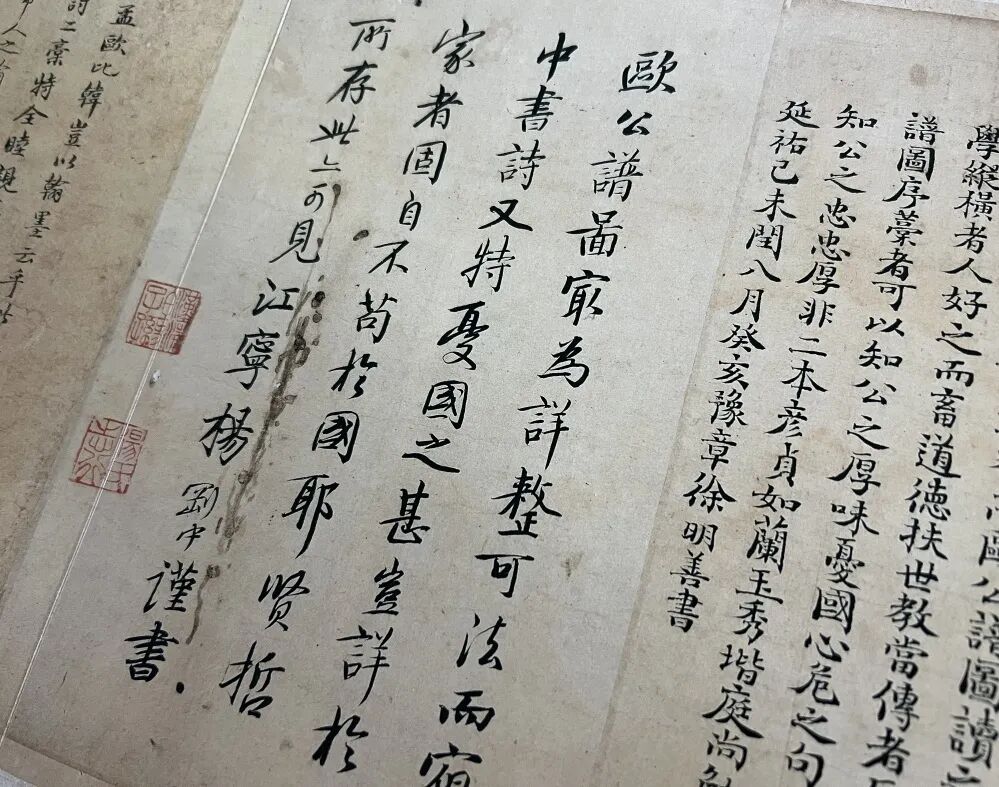 歐公譜圖讀之
學縱橫者人好之而畜道德扶世教當傳者
譜圖序藁者可以知公之厚味憂國心危之句
知公之忠忠厚非二本彥貞如蘭玉秀堦庭尚
延祐己未閏八月癸亥豫章徐明善書
歐公譜啚冣為詳整可法而宿
中書詩又特憂國之甚豈詳於
家者固自不苟於國耶賢哲
所存此亦可見江寧楊剛中謹書
楊氏志行
孟歐比韓豈以翰墨云乎
詩二藁特全睦親
人之